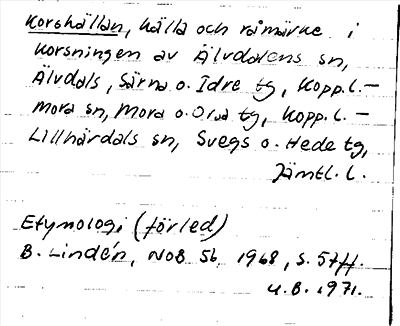 Korshällan, källa och råmärke i
korsningen av Älvdalens sn,
Älvdals, Särna o. Idre tg, Kopp.l. –
Mora sn, Mora o. Orsa tg, Kopp. l. –
Lillhärdals sn, Svegs o. Hede tg,
Jämtl. l.
Etymologi (förled)
B. Lindén, NOB 56, 1968, s. 57ff.
u.B. 1971.